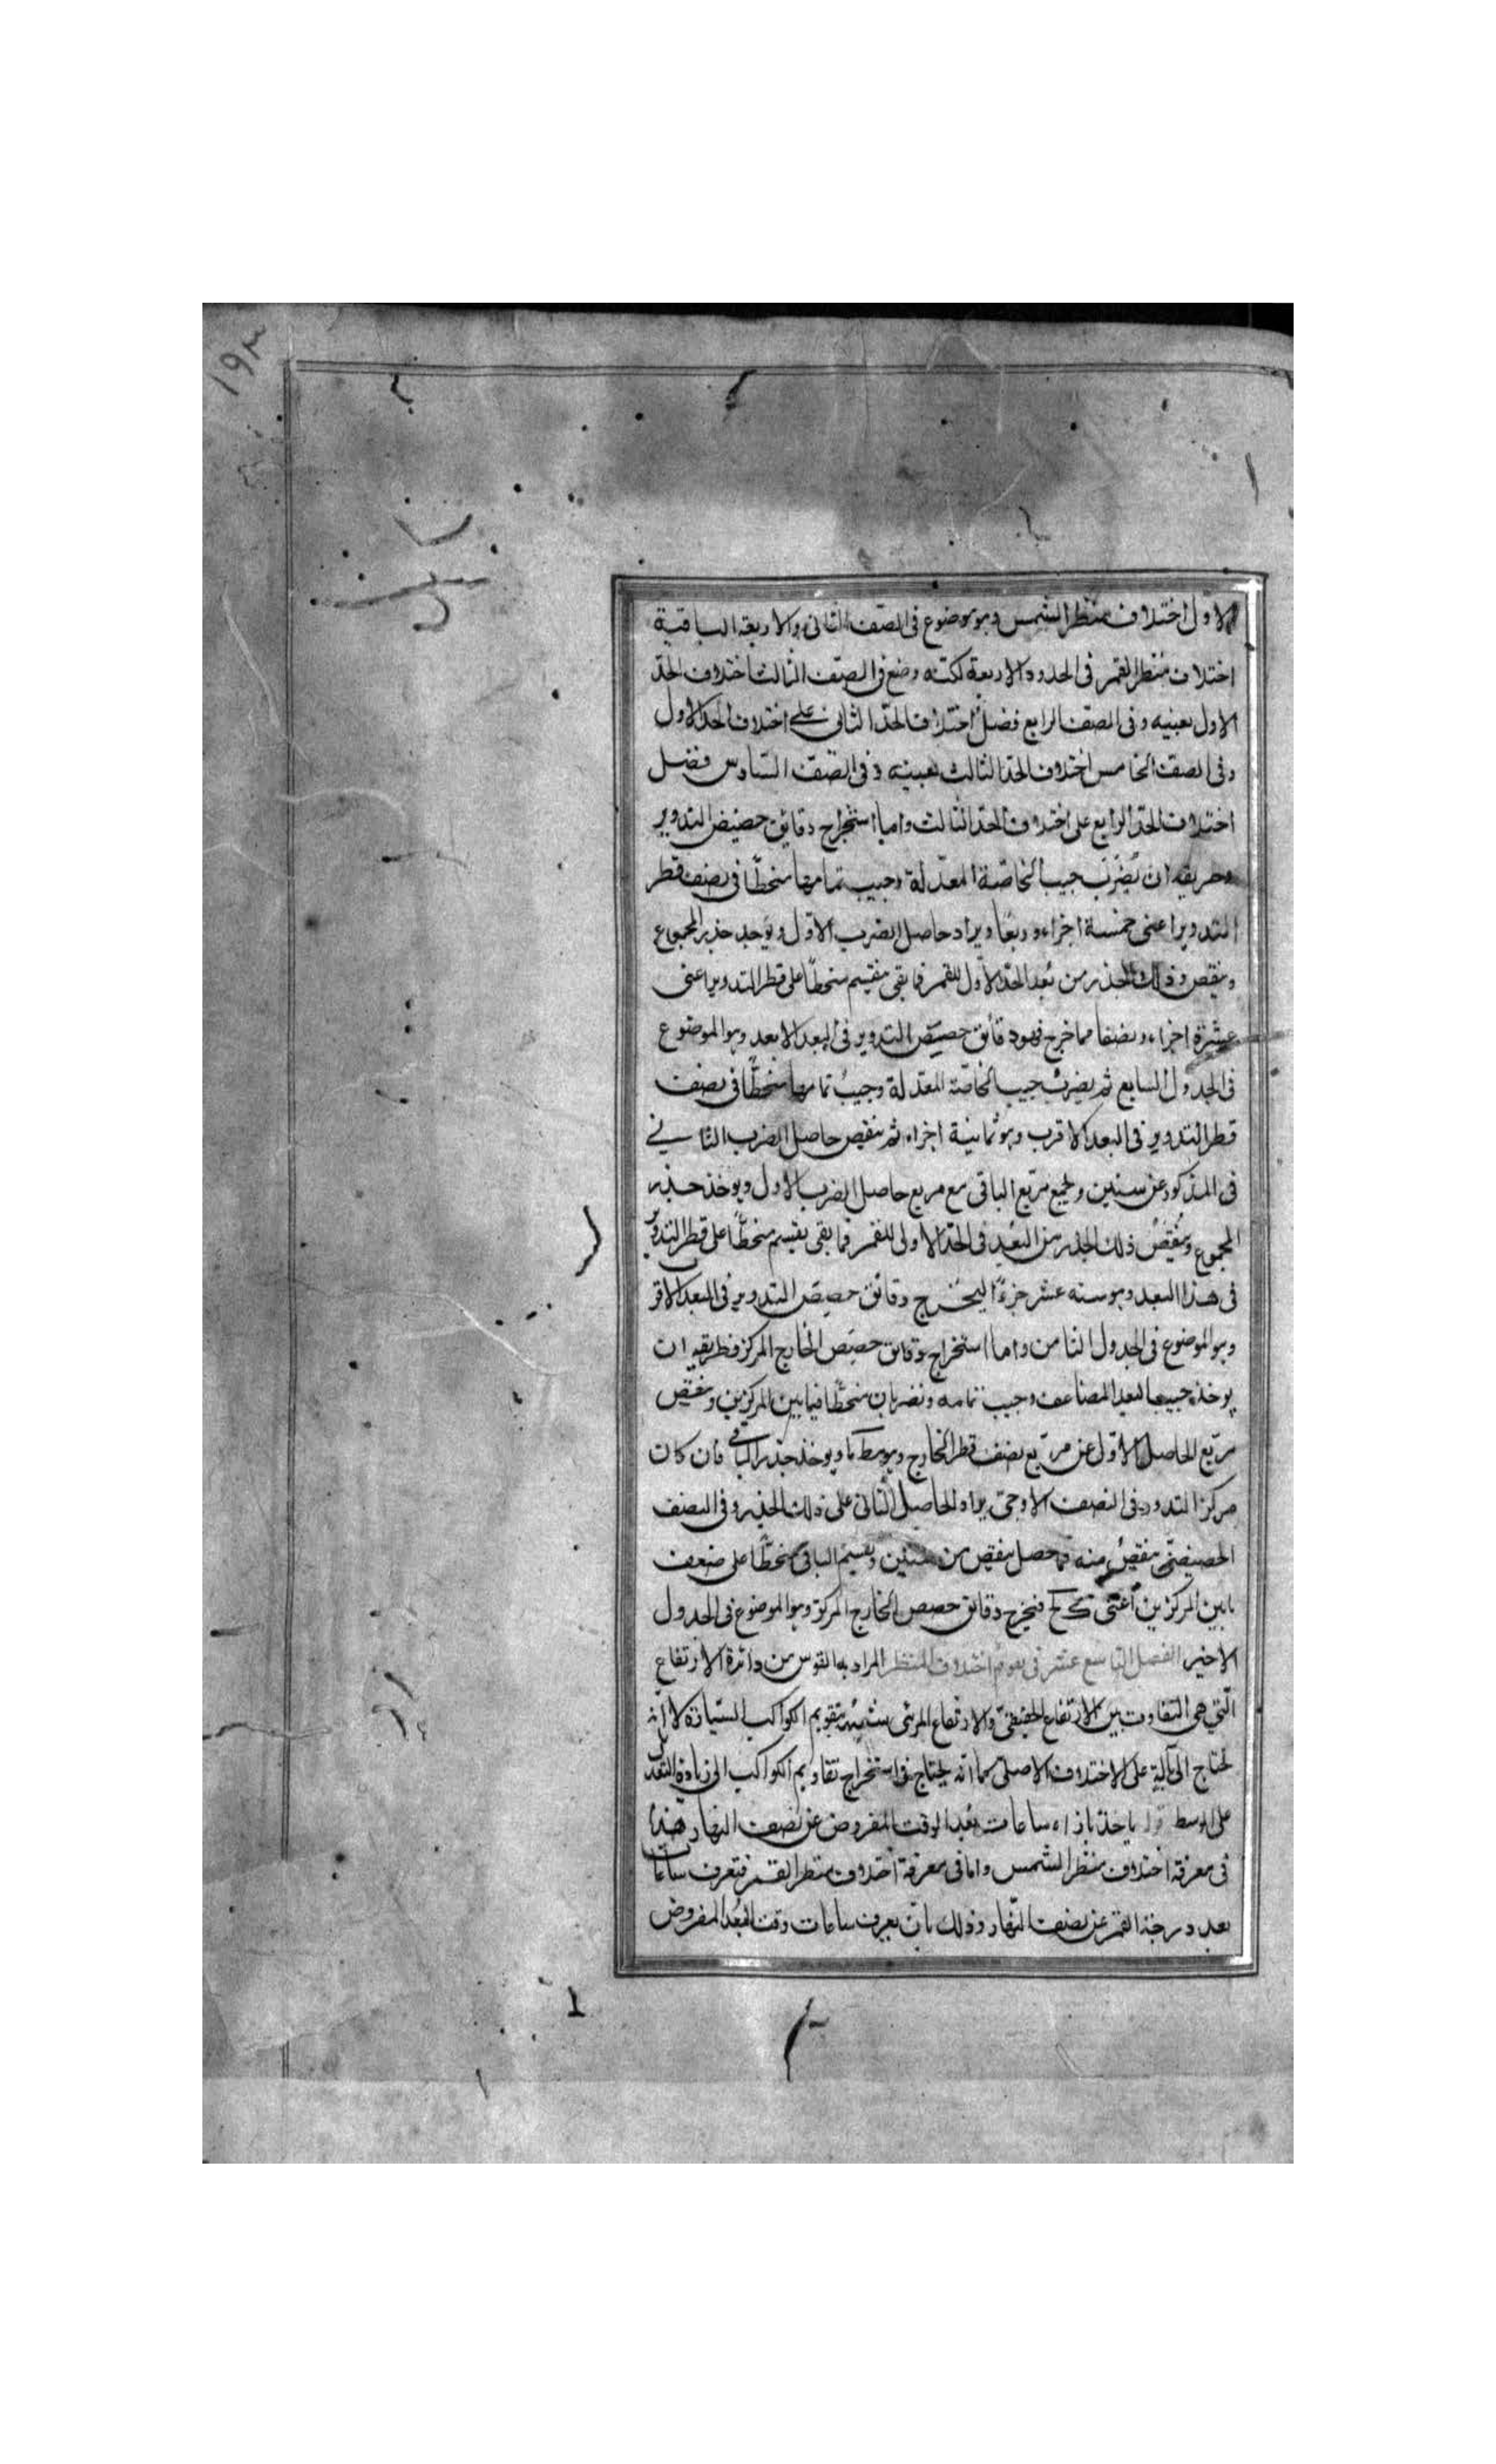 ١٩٣
الاول اختلاف منظر الشمس وهو موضوع فى الصف الثانى والاربعة الباقية
اختلاف منظر القمر فى الحدود الاربعة لكنه وضع فى الصف الثالث اختلاف الحد
الاول بعينه وفى الصف الرابع فضل اختلاف الحد الثانى على اختلاف الحد الاول
وفى الصف الخامس اختلاف الحد الثالث بعينه وفى الصف السادس فضل
اختلاف الحد الرابع على اختلاف الحد الثالث واما استخراج دقايق حصيض التدوير
وطريقه ان يُضرَب جيب الخاصّة المعدّلة وجيب تمامها منحطّا فى نصف قطر
التدوير اعنى خمسة اجزاء وربعًا ويزاد حاصل الضرب الاوّل ويوجد جذر المجموع
وينقص وذلك الجذر من بُعد الحدّ الاوّل للقمر فما بقى ينقسم منحطّا على قطر التدوير اعنى
عشرة اجزاء ونصفا فما خرج فهو دقائق حصيَص التدوير فى البعد الابعد وهو الموضوع
فى الجدول السابع ثم يضرب جيب الخاصّة المعدّلة وجيبُ تمامها منحطًّا فى نصف
قطر التدوير فى البعد الاقرب وهو ثمانية اجزاء ثم ينقص حاصل الضرب الثانى
فى المذكور عن ستين ويجمع مربّع الباقى مع مربع حاصل الضرب الاول ويوخذ جذر
المجموع ويُنقصُ ذلك الجذر من البُعد فى الحدّ الاولى للقمر فما بقى يقسم منحطًّا على قطر التدوير
فى هذا البعد وهو ستة عشر جزءًا ليخرج دقائق حصيَص التدوير فى البعد الاقرب
وهو الموضوع فى الجدول الثامن واما استخراج دقائق حصيَص الخارج المركز فطريقه ان
يوخذ جيب البعد المضاعف وجيب تمامه ونضربان منحطًّا فيما بين المركزين وينقص
مربّع الحاصل الاوّل عن مربّع نصف قطر الخارج وهو مط ما ويوخذ جذر الباقى فان كان
مركز التدوير فى النصف الاوجىّ يزاد الحاصل الثانى على ذلك الجذر وفى النصف
الحضيضىّ ينقصُ منه فما حصل ينقص من ستين ويقسم الباقى منحطًّا على ضعف
ما بين المركزين اعنى ك لح فيخرج دقائق حصص الخارج المركز وهو الموضوع فى الجدول
الاخير الفصل التاسع عشر فى تقويم اختلاف المنظر المراد به القوس من دائرة الارتفاع
الّتي هى التفاوت بين الارتفاع الحقيقىّ والارتفاع المرئى شبّه بتقويم الكواكب السيّارة لانّه
يحتاج الى على الاختلاف الاصلىّ كما انّه يحتاج فى استخراج تقاويم الكواكب الى زيادة التعديل
على الوسط قوله ياخذ بازاء ساعات بُعد الوقت المفروض عن نصف النهار هذا
فى معرفة اختلاف منظر الشمس واما فى معرفة اختلاف منظر القمر فتعرف ساعات
بعد درجة القمر عن نصف النّهار وذلك بان يعرف ساعات وقت البُعد المفروض